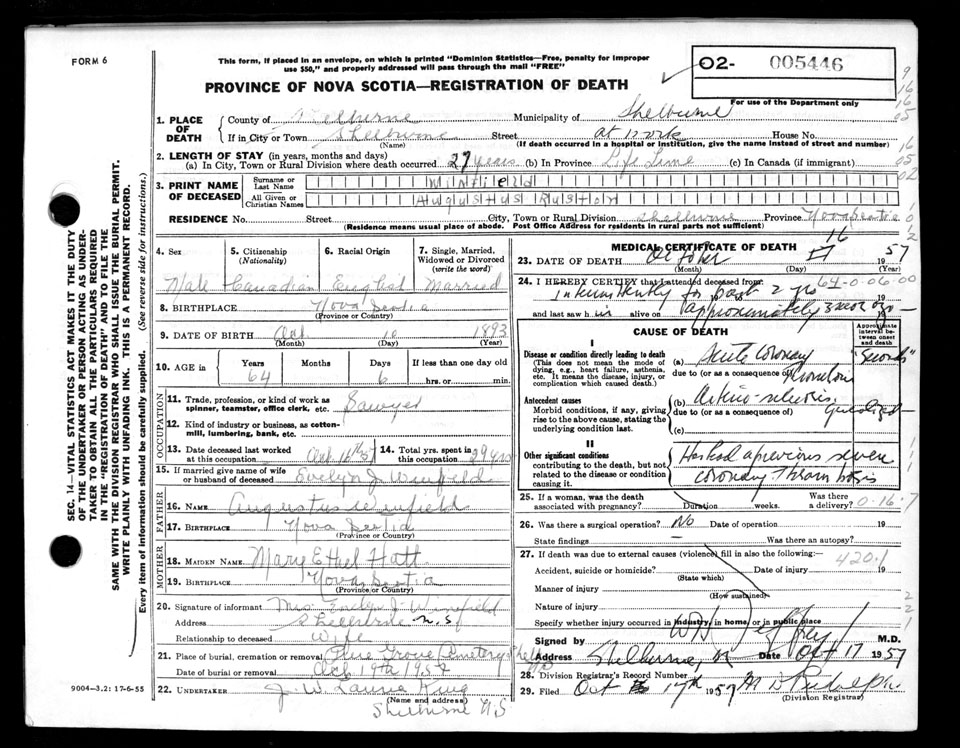 FORM 6
This form, if placed in an envelope, on which is printed "Dominion Statistics—Free, penalty for improper
use $50," and properly addressed will pass through the mail "FREE"
O2- 005446
For use of the Department only
PROVINCE OF NOVA SCOTIA—REGISTRATION OF DEATH
1. PLACE OF DEATH
County of Shelburne Municipality of Shelburne
If in City or Town Shelburne Street at work House No.
(Name) (If death occurred in a hospital or institution, give the name instead of street and number)
2. LENGTH OF STAY (in years, months and days)
(a) In City, Town or Rural Division where death occurred 27 years (b) In Province Life Time (c) In Canada (if immigrant)
3. PRINT NAME OF DECEASED
Surname or Last Name Winfield
All Given or Christian Names Augustus Rushton
RESIDENCE No. Street City, Town or Rural Division Shelburne Province Nova Scotia
(Residence means usual place of abode. Post Office Address for residents in rural parts not sufficient)
4. Sex Male
5. Citizenship (Nationality) Canadian
6. Racial Origin English
7. Single, Married, Widowed or Divorced (write the word) Married
8. BIRTHPLACE Nova Scotia
(Province or Country)
9. DATE OF BIRTH Oct 10 1893
(Month) (Day) (Year)
10. AGE in Years 64 Months Days 6 If less than one day old hrs. or min.
OCCUPATION
11. Trade, profession, or kind of work as spinner, teamster, office clerk, etc. Sawyer
12. Kind of industry or business, as cotton-mill, lumbering, bank, etc.
13. Date deceased last worked at this occupation Oct 16th 57
14. Total yrs. spent in this occupation 29 yrs
15. If married give name of wife or husband of deceased Evelyn J Winfield
FATHER
16. NAME Augustus Winfield
17. BIRTHPLACE Nova Scotia
(Province or Country)
MOTHER
18. MAIDEN NAME Mary Ethel Hatt
19. BIRTHPLACE Nova Scotia
(Province or Country)
20. Signature of informant Mrs. Evelyn J. Winfield
Address Shelburne N.S
Relationship to deceased Wife
21. Place of burial, cremation or removal Pine Grove Cemetery
Date of burial or removal Oct 19th 1957
22. UNDERTAKER J. W. Laurie King
(Name and address)
Shelburne N.S
9004—3.2: 17-6-55
MEDICAL CERTIFICATE OF DEATH
23. DATE OF DEATH October 16 1957
(Month) (Day) (Year)
24. I HEREBY CERTIFY that I attended deceased from:
64-0-06-00
intermittently for past 2 yrs 19
and last saw h im alive on approximately 19
CAUSE OF DEATH
Approximate interval between onset and death
I
Disease or condition directly leading to death
(This does not mean the mode of dying, e.g., heart failure, asthenia, etc. It means the disease, injury, or complication which caused death.)
(a) Acute Coronary
due to (or as a consequence of) Thrombosis
"Seconds"
Antecedent causes
Morbid conditions, if any, giving rise to the above cause, stating the underlying condition last.
(b) Arterio-sclerosis
due to (or as a consequence of) generalized
(c)
II
Other significant conditions
contributing to the death, but not related to the disease or condition causing it.
Has had a previous severe
coronary thrombosis
25. If a woman, was the death associated with pregnancy? Duration weeks. Was there a delivery?
0-16-7
26. Was there a surgical operation? No Date of operation 19
State findings — Was there an autopsy?
27. If death was due to external causes (violence) fill in also the following:—
420.1
Accident, suicide or homicide? Date of injury 19
(State which)
Manner of injury
(How sustained)
Nature of injury
Specify whether injury occurred in industry, in home, or in public place
Signed by M.D.
Address Shelburne, Date Oct 17 1957
28. Division Registrar's Record Number
29. Filed Oct 17th 1957
(Division Registrar)
SEC. 14—VITAL STATISTICS ACT MAKES IT THE DUTY
OF THE UNDERTAKER OR PERSON ACTING AS UNDER-
TAKER TO OBTAIN ALL THE PARTICULARS REQUIRED
IN THE "REGISTRATION OF DEATH" AND TO FILE THE
SAME WITH THE DIVISION REGISTRAR WHO SHALL ISSUE THE BURIAL PERMIT.
WRITE PLAINLY WITH UNFADING INK. THIS IS A PERMANENT RECORD.
Every item of information should be carefully supplied. (See reverse side for instructions.)